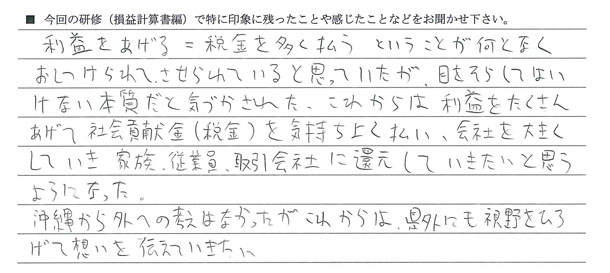 ■ 今回の研修（損益計算書編）で特に印象に残ったことや感じたことなどをお聞かせ下さい。
利益をあげる＝税金を多く払う ということが何となく
おしつけられて、させられていると思っていたが、目をそらしてはい
けない本質だと気づかされた、これからは利益をたくさん
あげて社会貢献金（税金）を気持ちよく払い、会社を大きく
していき 家族、従業員、取引会社に還元していきたいと思う
ようになった。
沖縄から外への考えはなかったがこれからは、県外にも視野をひろ
げて想いを伝えていきたい